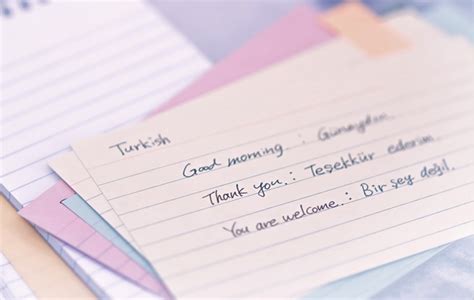 Turkish
Good morning. : Günaydın.
Thank you. : Teşekkür ederim.
You are welcome. : Bir şey değil.